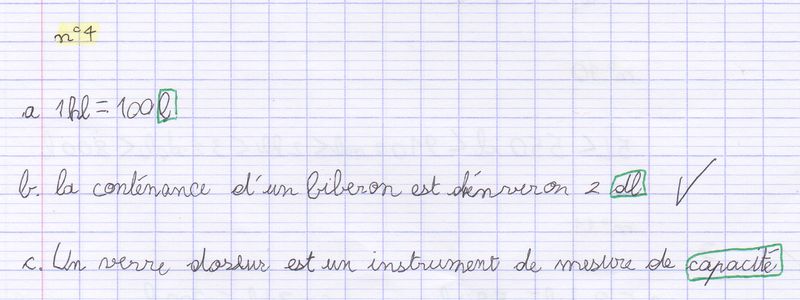 n°4
a 1hl = 100 l
b. la conténance d'un biberon est d'énviron 2 dl
c. Un verre doseur est un instrument de mesure de capacité